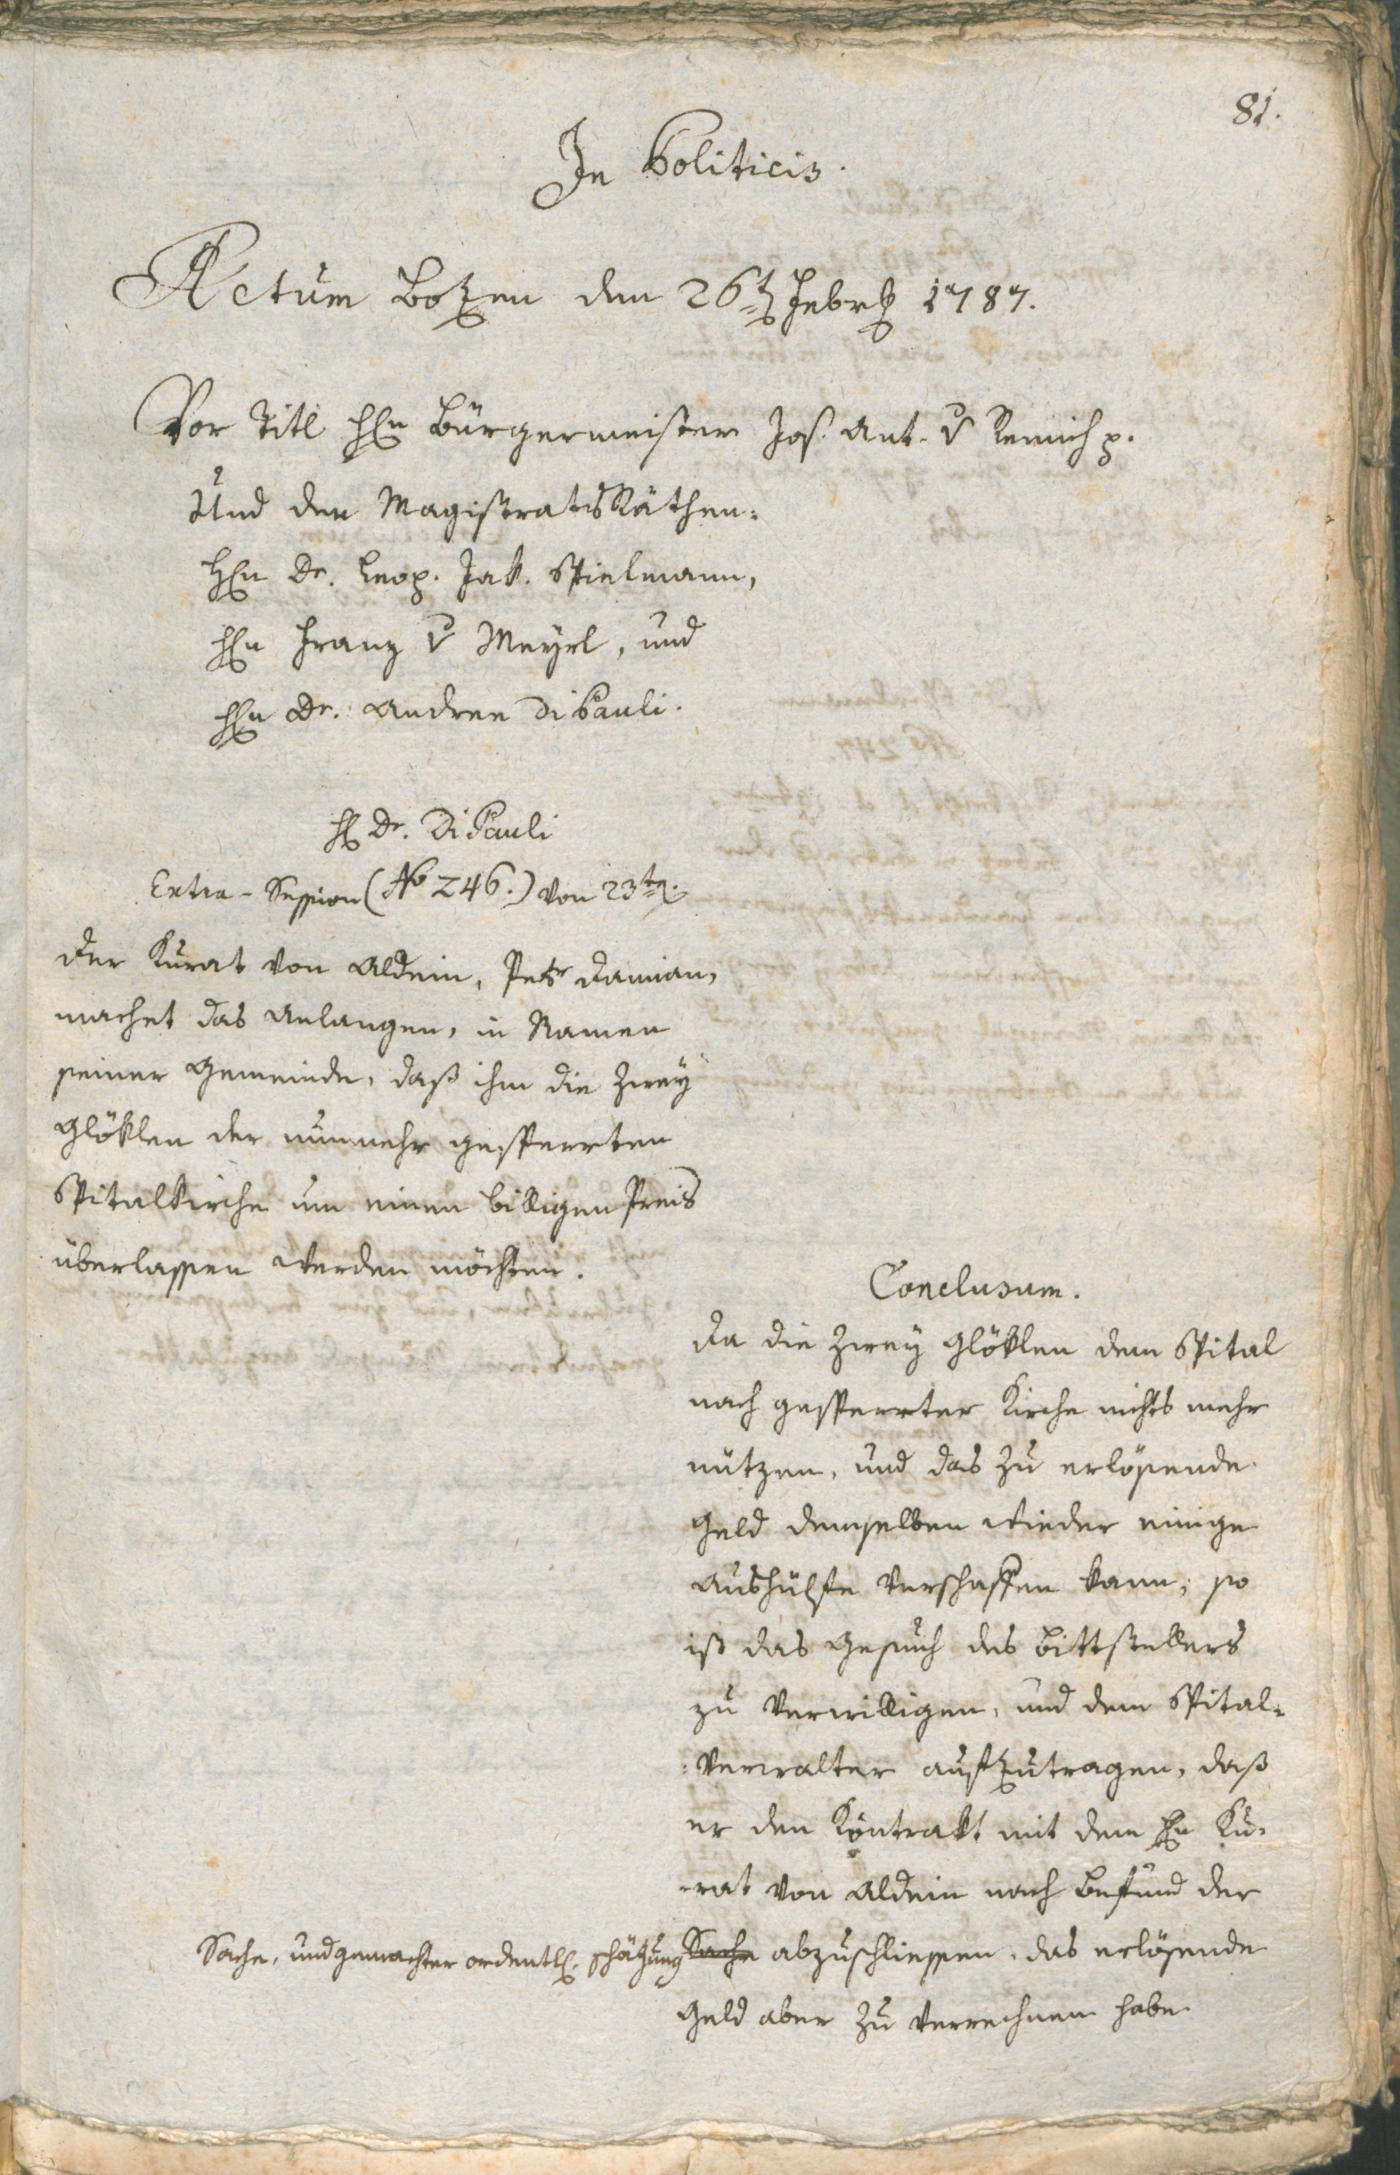 81.
In Politicis.
Actum Botzen den 26t Febrꝛ 1787.
Vor Titl Hℓn Bürgermeister Jos. Ant. v Remich p.
Und den Magistrats Räthen:
Hℓn Dr. Leop. Jak. Spielmann,
Hℓn Franz v Meyrl, und
Hℓn Dr. Andree Di Pauli.
Hℓ Dr. Di Pauli
Extra-Session (No 246.) von 23ten.
Der Kurat von Aldein, Petr Damian,
machet das Anlangen, in Namen
seiner Gemeinde, daß ihm die zwey
Glöklen der nunmehr gesperrten
Spitalkirche um einen billigen Preis
überlassen werden möchten.
Conclusum.
Da die zwey Glöklen dem Spital
nach gesperrter Kirche nichts mehr
nützen, und das zu erlösende
Geld demselben wieder einige
Aushülfe verschaffen kann; so
ist das Gesuch des Bittstellers
zu verwilligen, und dem Spital-
verwalter aufzutragen, daß
er den Kontrakt mit dem Hn Ku-
-rat von Aldein nach Befund der
Sache, und gemachter ordentl. Schätzung Sache abzuschliessen, das erlösende
Geld aber zu verrechnen habe.